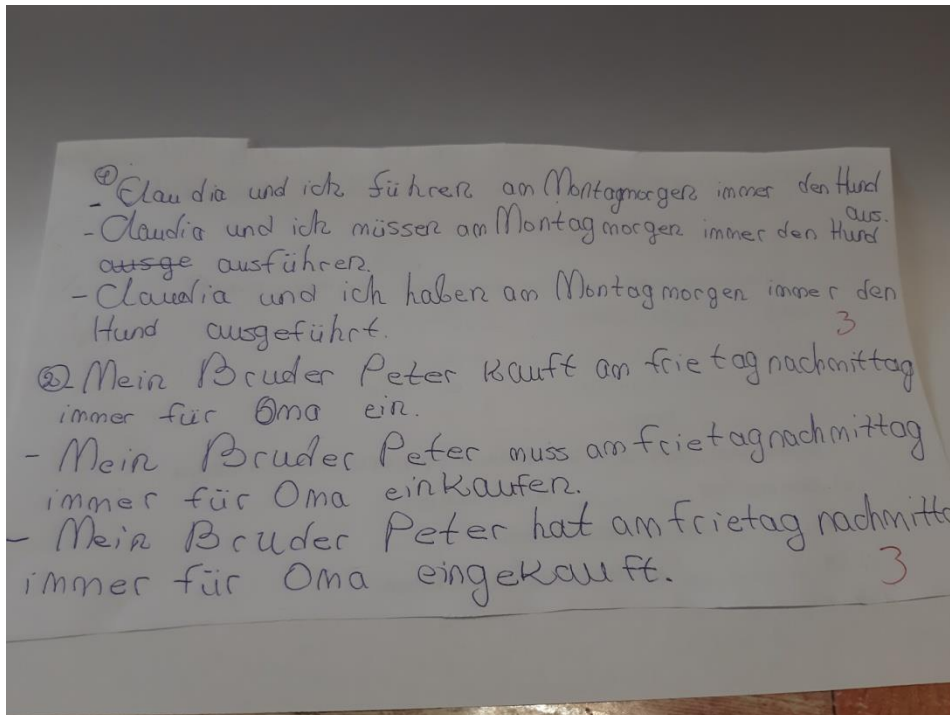 ① - Claudia und ich führen am Montagmorgen immer den Hund
aus.
- Claudia und ich müssen am Montagmorgen immer den Hund
ausge ausführen.
- Claudia und ich haben am Montagmorgen immer den
Hund ausgeführt.
3
② Mein Bruder Peter kauft am frietagnachmittag
immer für Oma ein.
- Mein Bruder Peter muss am frietagnachmittag
immer für Oma einkaufen.
- Mein Bruder Peter hat am frietag nachmitta
immer für Oma eingekauft.
3